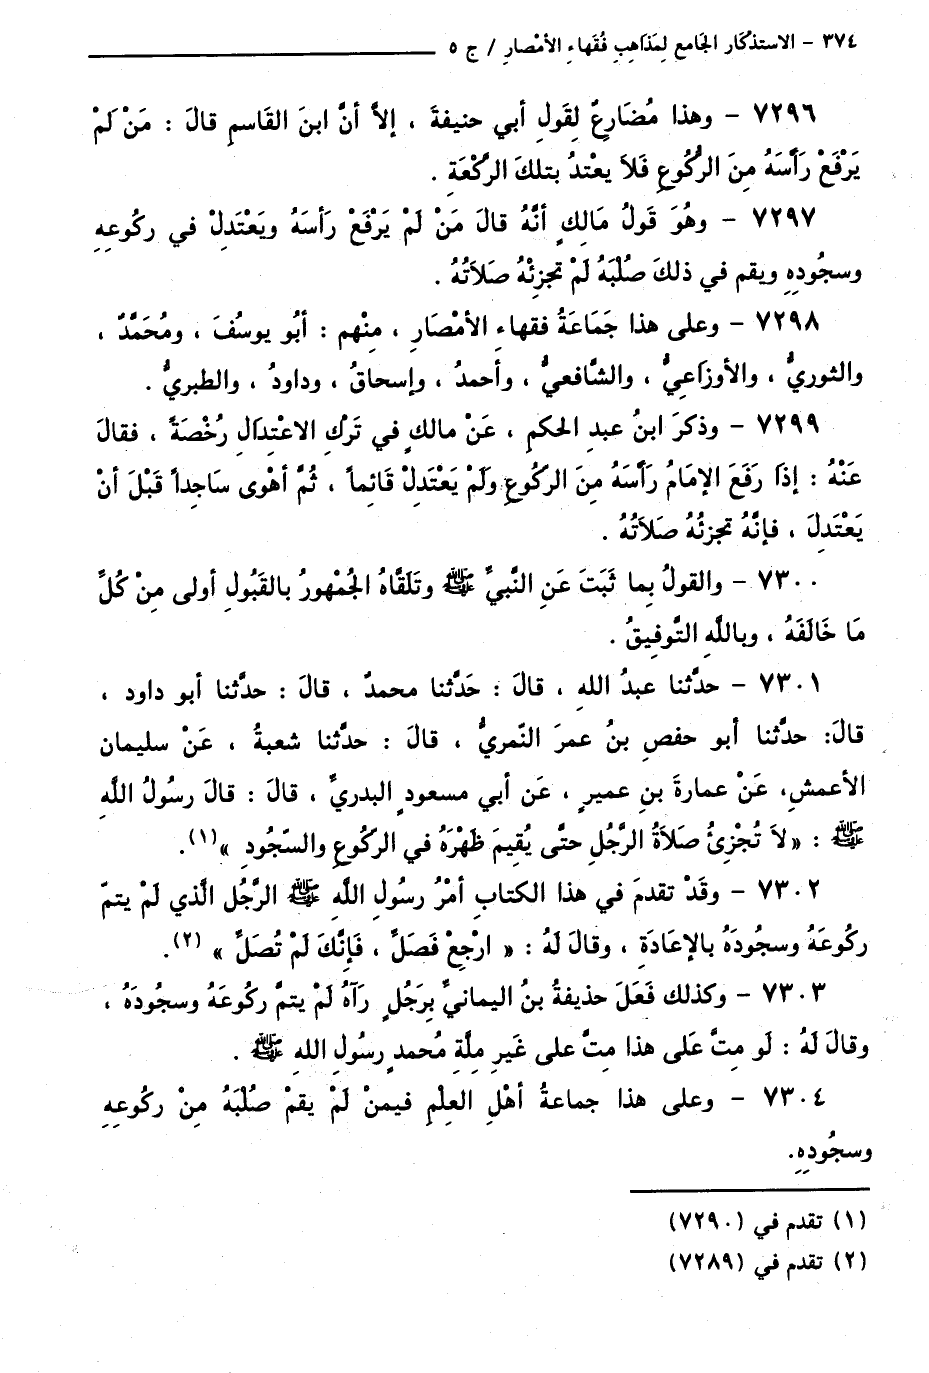 ٣٧٤ - الاستذكار الجامع لمذاهب فقهاء الأمصار / ج ٥
٧٢٩٦ - وهذا مُضَارِعٌ لِقَولِ أبي حنيفةَ ، إلاَّ أنَّ ابنَ القَاسمِ قالَ : مَنْ لَمْ
يَرْفَعْ رَأسَهُ مِنَ الرُّكُوعِ فَلاَ يعْتدُ بتلكَ الرَّكْعَةِ .
٧٢٩٧ - وهُوَ قَولُ مَالِكٍ أنَّهُ قالَ مَنْ لَمْ يَرْفَعْ رَأسَهُ ويَعْتَدِلْ في ركُوعهِ
وسجُودهِ ويقم في ذلكَ صُلْبَهُ لَمْ تجزِئْهُ صَلاَتُهُ .
٧٢٩٨ - وعلى هذا جَمَاعَةُ فقهاءِ الأمْصَارِ ، مِنْهم : أبُو يوسُفَ ، ومُحَمَّدٌ ،
والثوريُّ ، والأوزَاعيُّ ، والشَّافعيُّ ، وأحمدُ ، وإسحاقُ ، وداودُ ، والطبريُّ .
٧٢٩٩ - وذكرَ ابنُ عبدِ الحكمِ ، عَنْ مالكٍ في تَرْكِ الاعْتِدَالِ رُخْصَةً ، فقالَ
عَنْهُ : إذَا رَفَعَ الإمَامُ رَأسَهُ مِنَ الركُوعِ ولَمْ يَعْتَدِلْ قَائماً ، ثُمَّ أهْوى سَاجِداً قَبْلَ أنْ
يَعْتَدِلَ ، فإنَّهُ تجزئُهُ صَلاَتُهُ .
٧٣٠٠ - والقولُ بِما ثَبَتَ عَنِ النَّبيِّ ﷺ وتَلَقَّاهُ الجُمْهورُ بالقَبُولِ أولى مِنْ كُلِّ
مَا خَالَفَهُ ، وباللَّهِ التَّوفيقُ .
٧٣٠١ - حدَّثنا عبدُ اللهِ ، قالَ : حَدَّثنا محمدٌ ، قالَ : حدَّثنا أبو داود ،
قالَ: حدَّثنا أبو حفصِ بنُ عمرَ النَّمريُّ ، قالَ : حدَّثنا شعبةُ ، عَنْ سليمان
الأعمشِ، عَنْ عمارةَ بنِ عميرٍ ، عَن أبي مسعودٍ البدريِّ ، قالَ : قالَ رسُولُ اللَّهِ
ﷺ : «لاَ تُجْزِئُ صلاَةُ الرَّجُلِ حتَّى يُقِيمَ ظَهْرَهُ في الركُوعِ والسّجُودِ »(١).
٧٣٠٢ - وقَدْ تقدمَ في هذا الكتابِ أمْرُ رسُولِ اللَّهِ ﷺ الرَّجُل الَّذي لَمْ يتمّ
ركُوعَهُ وسجُودَهُ بالإعَادَةِ ، وقالَ لَهُ : « ارْجِعْ فَصَلِّ ، فَإنَّكَ لَمْ تُصَلِّ » (٢).
٧٣٠٣ - وكذلك فَعَلَ حذيفةُ بنُ اليمانيِّ بِرَجُلٍ رَآهُ لَمْ يتمَّ ركُوعَهُ وسجُودَهُ ،
وقالَ لَهُ : لَو مِتَّ عَلى هذا مِتَّ على غَيرِ مِلَّةِ مُحمدٍ رسُولِ اللهِ ﷺ .
٧٣٠٤ - وعلى هذا جماعةُ أهْلِ العِلْمِ فيمنْ لَمْ يقمْ صُلْبَهُ مِنْ ركُوعهِ
وسجُودِهِ.
(١) تقدم في (٧٢٩٠)
(٢) تقدم في (٧٢٨٩)